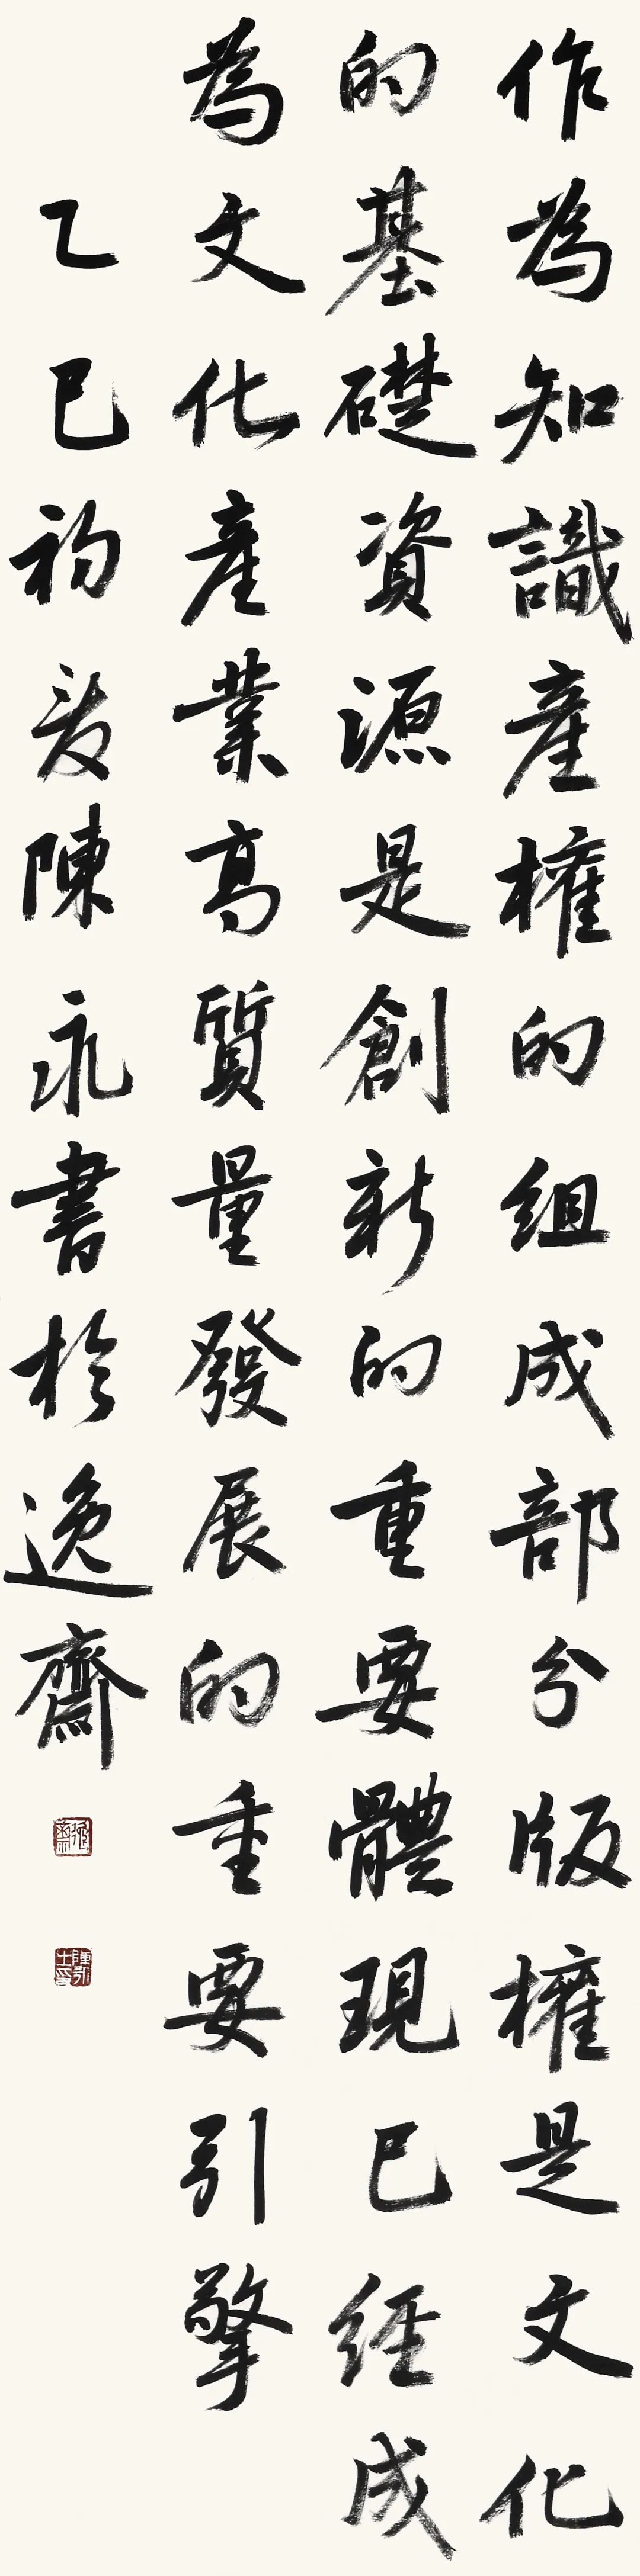 作為知識產權的組成部分版權是文化
的基礎資源是創新的重要體現已經成
為文化產業高質量發展的重要引擎
乙巳初夏陳永書於逸齋